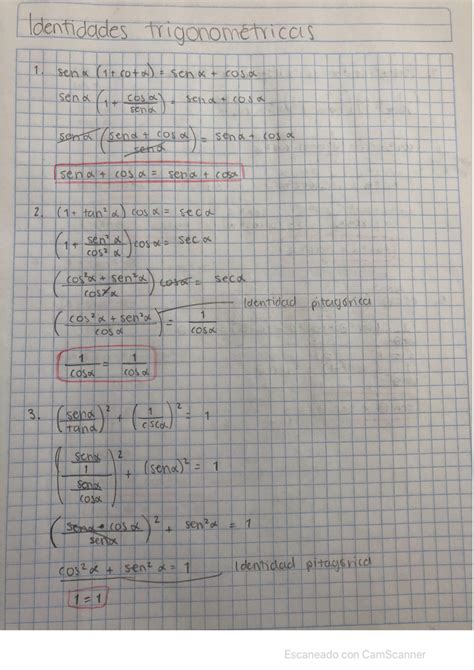 Identidades trigonométricas
1. senα (1 + cotα) = senα + cosα
senα (1 + cosα/senα) = senα + cosα
senα (senα + cosα/senα) = senα + cosα
senα + cosα = senα + cosα
2. (1 + tan²α) cosα = secα
(1 + sen²α/cos²α) cosα = secα
(cos²α + sen²α/cos²α) cosα = secα
Identidad pitagórica
(cos²α + sen²α/cosα) = 1/cosα
1/cosα = 1/cosα
3. (senα/tanα)² + (1/cscα)² = 1
(senα/1/senα/cosα)² + (senα)² = 1
(senα • cosα/senα)² + sen²α = 1
cos²α + sen²α = 1 Identidad pitagórica
1 = 1
Escaneado con CamScanner